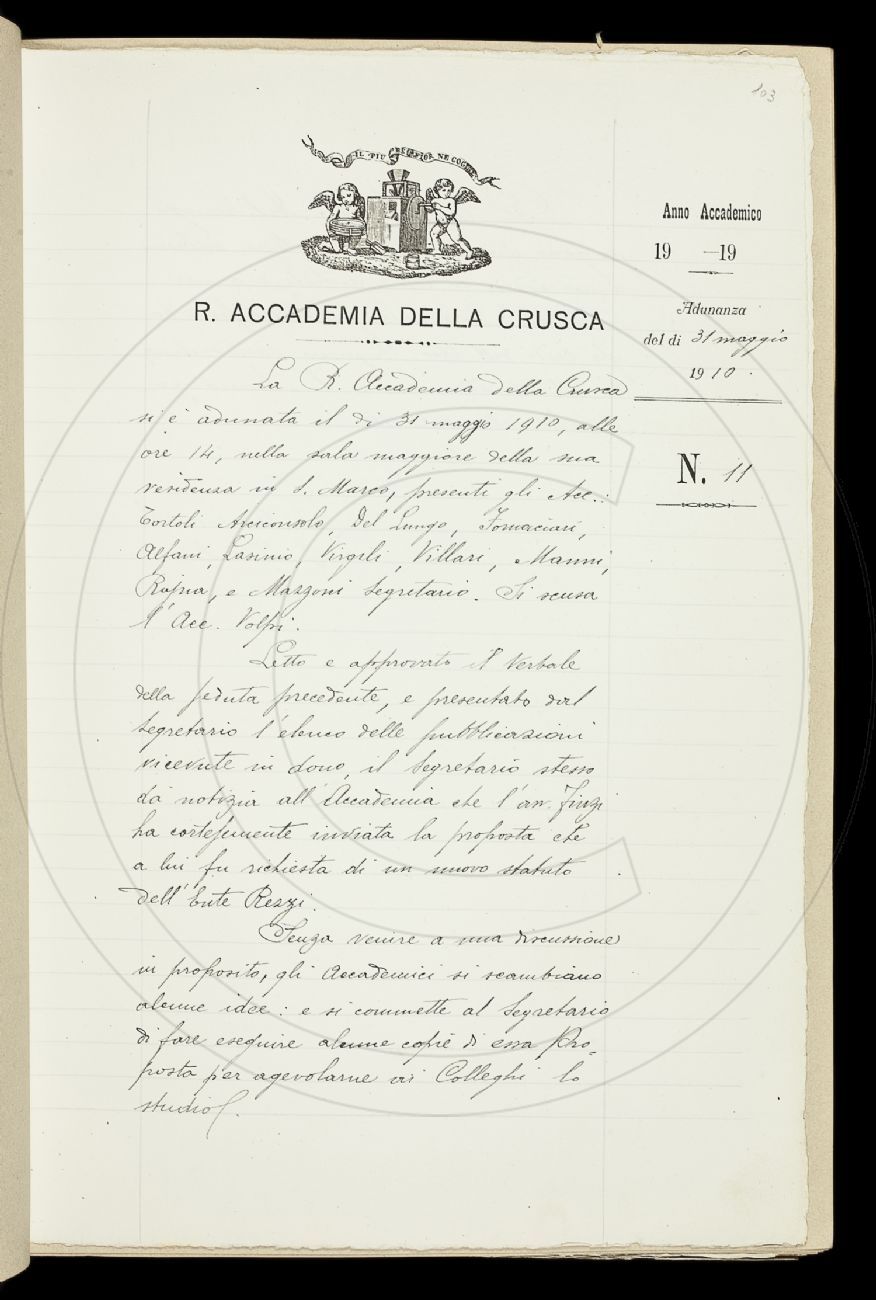 103
IL PIÙ BEL FIOR NE COGLIE
Anno Accademico
19 —19
R. ACCADEMIA DELLA CRUSCA
Adunanza
del dì 31 maggio
1910.
N. 11
La R. Accademia della Crusca
si è adunata il dì 31 maggio 1910, alle
ore 14, nella sala maggiore della sua
residenza in S. Marco, presenti gli Acc.:
Tortoli Arciconsolo, Del Lungo, Fornaciari,
Alfani, Lasinio, Virgili, Villari, Manni,
Rajna, e Mazzoni Segretario. Si scusa
l'Acc. Volpi.
Letto e approvato il Verbale
della seduta precedente, e presentato dal
Segretario l'elenco delle pubblicazioni
ricevute in dono, il Segretario stesso
dà notizia all'Accademia che l'av. Finzi
ha cortesemente inviata la proposta che
a lui fu richiesta di un nuovo statuto
dell'Ente Rezzi.
Senza venire a una discussione
in proposito, gli Accademici si scambiano
alcune idee: e si commette al Segretario
di fare eseguire alcune copie di essa Pro-
posta per agevolarne ai Colleghi lo
studio.